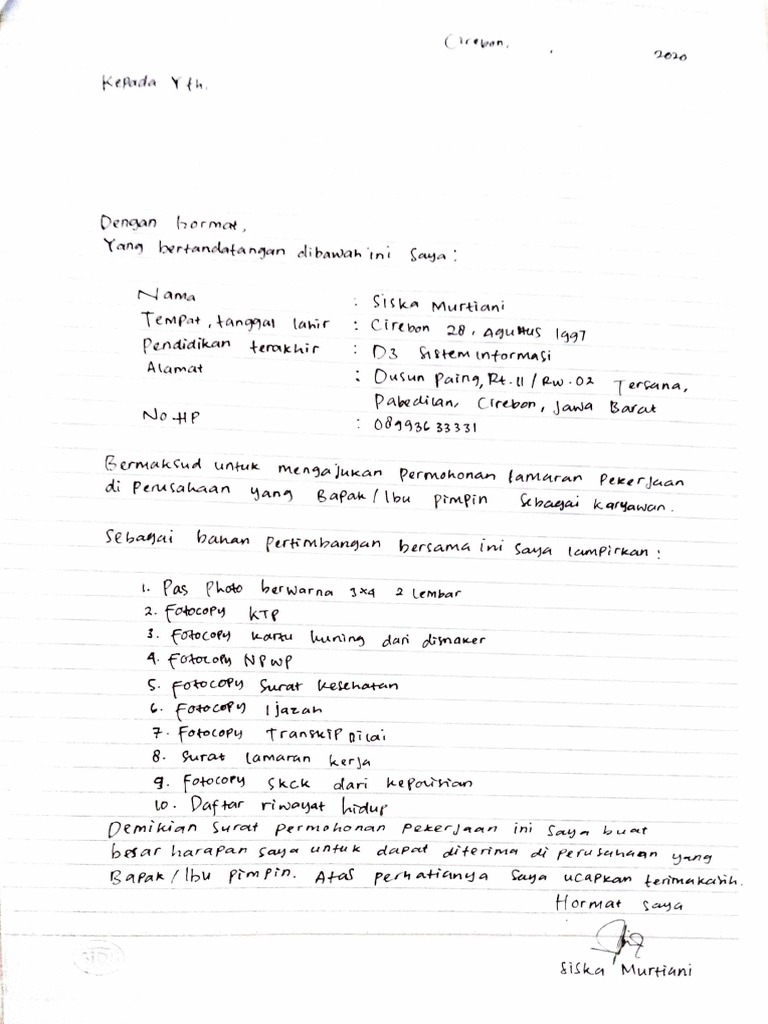 Cirebon, . 2020
Kepada Yth.
Dengan hormat,
Yang bertandatangan dibawah ini saya :
Nama : Siska Murtiani
Tempat, tanggal lahir : Cirebon 28, Agustus 1997
Pendidikan terakhir : D3 Sistem informasi
Alamat : Dusun Paing, Rt.11 / Rw.02 Tersana,
Pabedilan, Cirebon, Jawa Barat
No.HP : 089936 33331
Bermaksud untuk mengajukan permohonan lamaran pekerjaan
di perusahaan yang Bapak/Ibu pimpin sebagai karyawan.
Sebagai bahan pertimbangan bersama ini saya lampirkan :
1. Pas Photo berwarna 3x4 2 lembar
2. Fotocopy KTP
3. Fotocopy kartu kuning dari disnaker
4. Fotocopy NPWP
5. Fotocopy Surat kesehatan
6. Fotocopy Ijazah
7. Fotocopy Transkip nilai
8. Surat lamaran kerja
9. Fotocopy SKCK dari kepolisian
10. Daftar riwayat hidup
Demikian surat permohonan pekerjaan ini saya buat
besar harapan saya untuk dapat diterima di perusahaan yang
Bapak/Ibu pimpin. Atas perhatianya saya ucapkan terimakasih.
Hormat saya
Siska Murtiani